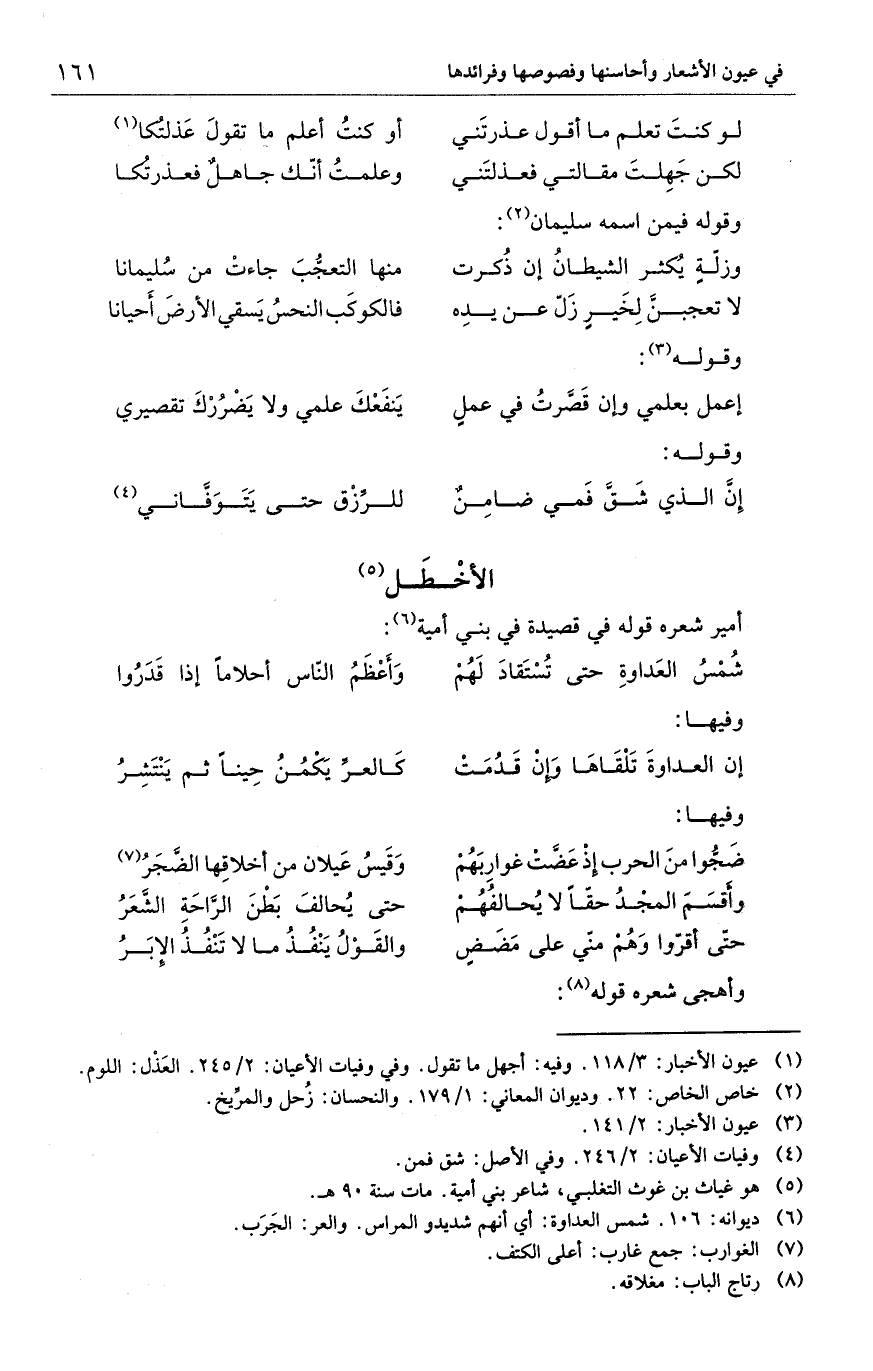 في عيون الأشعار وأحاسنها وفصوصها وفرائدها ١٦١
لو كنتَ تعلم ما أقول عذرتَني أو كنتُ أعلم ما تقولَ عَذلتُكا(١)
لكن جَهِلتَ مقالتي فعذلتَني وعلمتُ أنّك جاهلٌ فعذرتُكا
وقوله فيمن اسمه سليمان(٢):
وزلّةٍ يُكثر الشيطانُ إن ذُكرت منها التعجُّبَ جاءتْ من سُليمانا
لا تعجبنَّ لِخَيرٍ زَلّ عن يدِه فالكوكَب النحسُ يَسقي الأرضَ أَحيانا
وقوله(٣):
إعمل بعلمي وإن قَصَّرتُ في عملٍ يَنفَعْكَ علمي ولا يَضْرُرْكَ تقصيري
وقوله:
إنَّ الذي شَقَّ فَمي ضامِنٌ للرِّزْق حتى يَتَوَفَّاني(٤)
الأخْطَل(٥)
أمير شعره قوله في قصيدة في بني أمية(٦):
شُمْسُ العَداوةِ حتى تُسْتَقادَ لَهُمْ وَأَعْظَمُ النّاس أحلاماً إذا قَدَرُوا
وفيها:
إن العداوةَ تَلْقَاهَا وَإنْ قَدُمَتْ كَالعرِّ يَكْمُنُ حِيناً ثم يَنْتَشِرُ
وفيها:
ضَجُّوا منَ الحرب إذْ عَضَّتْ غواربَهُمْ وَقَيسُ عَيلان من أخلاقِها الضَّجَرُ(٧)
وأَقسَمَ المجْدُ حقّاً لا يُحالفُهُمْ حتى يُحالفَ بَطْنَ الرَّاحَةِ الشَّعَرُ
حتّى أقرّوا وَهُمْ منّي على مَضَضٍ والقَوْلُ يَنْفُذُ ما لا تَنْفُذُ الإبَرُ
وأهجى شعره قوله(٨):
(١) عيون الأخبار: ١١٨/٣. وفيه: أجهل ما تقول. وفي وفيات الأعيان: ٢٤٥/٢. العَذْل: اللوم.
(٢) خاص الخاص: ٢٢. وديوان المعاني: ١٧٩/١. والنحسان: زُحل والمرِّيخ.
(٣) عيون الأخبار: ١٤١/٢.
(٤) وفيات الأعيان: ٢٤٦/٢. وفي الأصل: شق فمن.
(٥) هو غياث بن غوث التغلبي، شاعر بني أمية. مات سنة ٩٠ هـ.
(٦) ديوانه: ١٠٦. شمس العداوة: أي أنهم شديدو المراس. والعر: الجَرَب.
(٧) الغوارب: جمع غارب: أعلى الكتف.
(٨) رتاج الباب: مغلاقه.